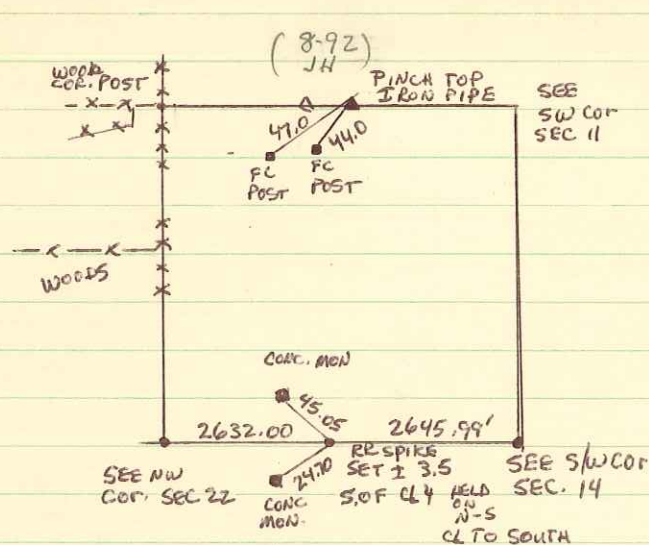 (8-92)
JH
WOOD
COR. POST
PINCH TOP
IRON PIPE
SEE
SW COR
SEC 11
47.0
44.0
FC
POST
FC
POST
WOODS
CONC. MON
45.05
2632.00
2645.99'
24.70
RR SPIKE
SET ± 3.5
S. OF CL &
HELD
ON
N-S
CL TO SOUTH
SEE NW
COR. SEC 22
CONC
MON.
SEE S/W COR
SEC. 14